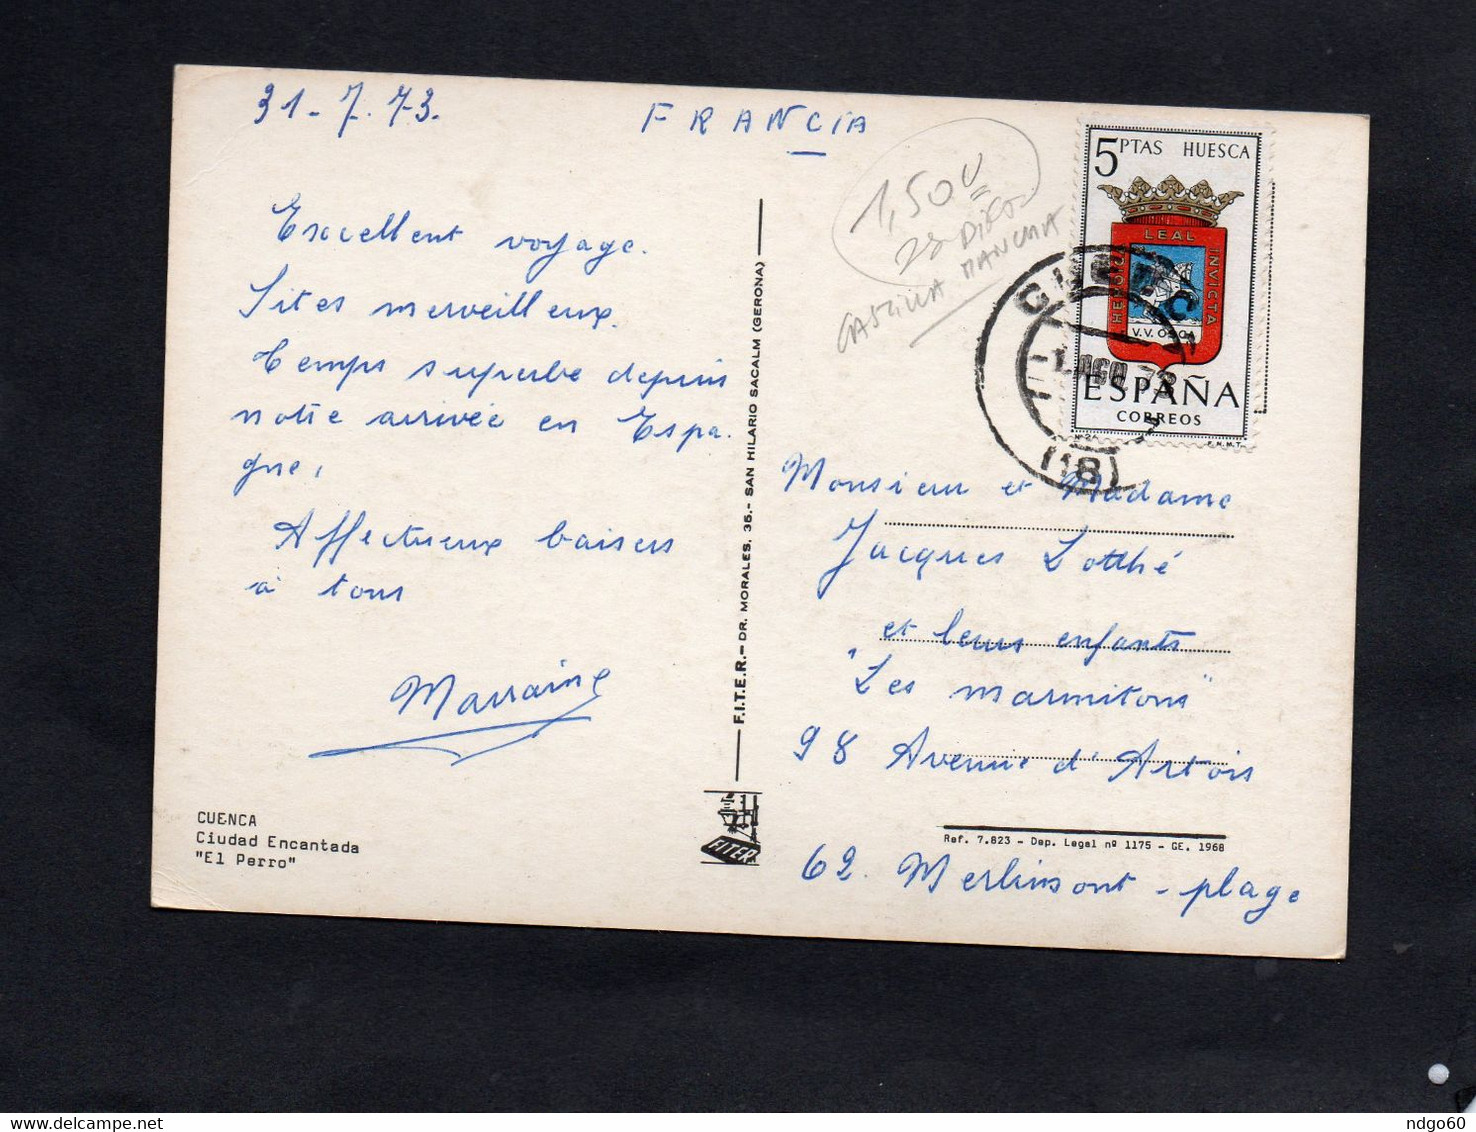 31-7.73.
FRANCIA
Excellent voyage.
Sites merveilleux.
Temps superbe depuis
notre arrivée en Espa-
gne,
Affectueux baisers
à tous
Marraine
CUENCA
Ciudad Encantada
"El Perro"
F.I.T.E.R.-DR. MORALES, 35.- SAN HILARIO SACALM (GERONA)
FITER
1,50
CASTILLA MANCHA
5 PTAS HUESCA
LEAL INVICTA
V.V. OSCA
ESPAÑA
CORREOS
F.N.M.T.
CUENCA
1 AGO 73
(18)
Monsieur et Madame
Jacques Lotthé
et leurs enfants
"Les marmitons"
98 Avenue d'Artois
Ref. 7.823 - Dep. Legal nº 1175 - GE. 1968
62. Merlimont-plage
ndgo60